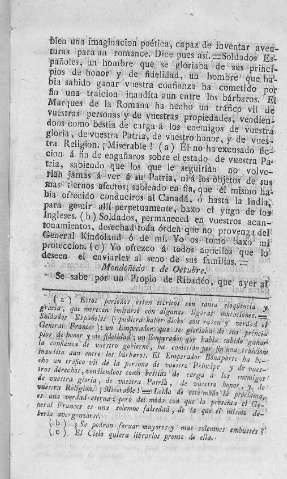 bien una imaginacion poética, capaz de inventar aven-
turas para un romance. Dice pues asi. = Soldados Es-
pañoles, un hombre que se gloriaba de sus princi-
pios de honor y de fidelidad, un hombre que ha-
bia sabido ganar vuestra confianza ha cometido por
fin una traicion inaudita aun entre los bárbaros. El
Marques de la Romana ha hecho un tráfico vil de
vuestras personas y de vuestras propiedades, vendien-
doos como bestia de carga á los enemigos de vuestra
gloria, de vuestra Patria, de vuestro honor, y de vues-
tra Religion. ¡ Miserable ! (a) Él no ha excusado fic-
cion á fin de engañaros sobre el estado de vuestra Pa-
tria, sabiendo que los que le seguirian no volve-
rian jamás á ver á su Patria, ni á los objetos de sus
mas tiernos afectos; sabiendo en fin, que él mismo ha-
bia ofrecido conduciros al Canadá, ó hasta la India,
para gemir allí perpetuamente, baxo el yugo de los
Ingleses. (b) Soldados, permaneced en vuestros acan-
tonamientos, desechad toda órden que no provenga del
General Kindoland ó de mí. Yo os tomo baxo mi
proteccion. (c) Yo ofrezco á todos aquellos que lo
deseen el enviarles al seno de sus familias. =
Mondoñedo 1 de Octubre.
Se sabe por un Propio de Ribadéo, que ayer al
(a) Estos periodos estan escritos con tanta eloqüencia y
gracia, que merecen imitarse con algunas ligeras mutaciones. =
Soldados Españoles (pudieral haber dicho con razon y verdad el
General Frances) un Emperador que se gloriaba de sus princi-
pios de honor y de fidelidad; un Emperador que habia sabido ganar
la confianza de vuestro gobierno, ha cometido por fin una traicion
inaudita aun entre los bárbaros. El Emperador Bonaparte ha he-
cho un tráfico vil de la persona de vuestro Príncipe y de vues-
tros derechos, vendiendoos como bestias de carga á los enemigos
de vuestra gloria, de vuestra Patria, de vuestro honor, y de
vuestra Religion. ¡Miserable! = Leida de este modo la proclama,
es una verdad eterna; pero del modo con que la produce el Ge-
neral Frances es una solemne falsedad, de la que él mismo de-
beria avergonzarse.
(b) ¿Se podrán forjar mayores y mas solemnes embustes?
(c) El Cielo quiera librarlos pronto de ella.